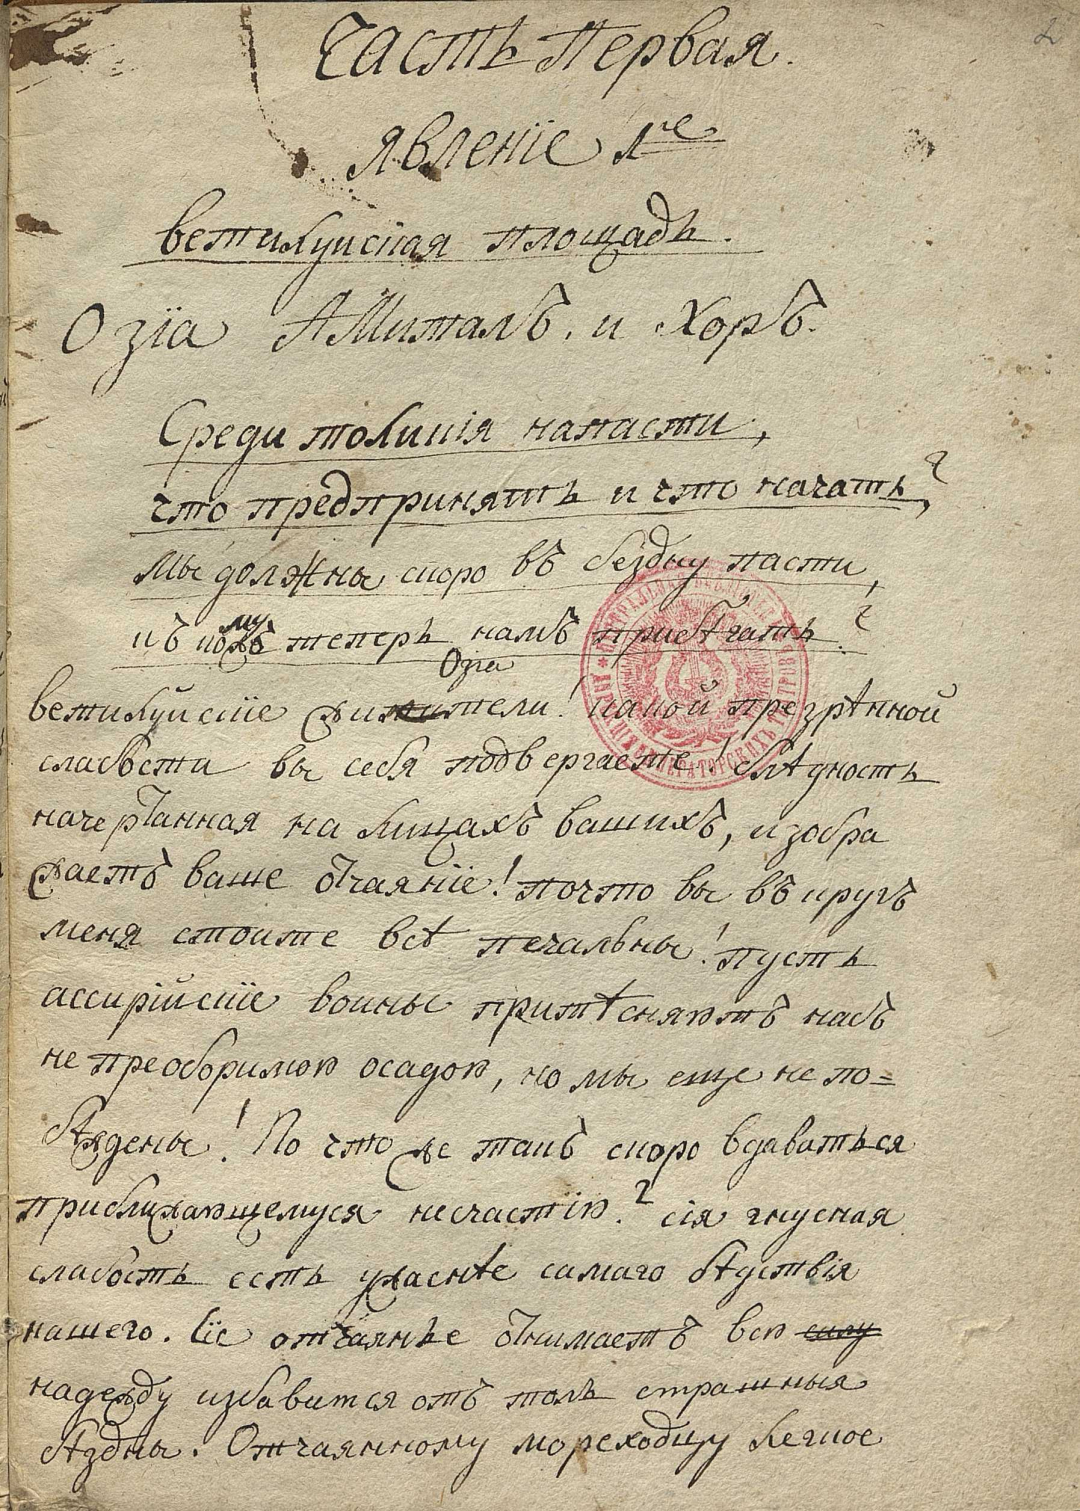 2
Часть Первая.
явленїе 1е
ветилуиская площадь.
Озїа АМиталъ. и Хоръ.
Среди толикїя напасти,
что предпринять и что начать?
Мы должны скоро въ бездну пасти,
къ кому теперь намъ прибѣгать?
Озїа
ветилуйскїе жители! какой презрѣнной
слабости вы себя подвергаете! блѣдность
начертанная на лицахъ вашихъ, изобра
жаетъ ваше отчаянїе! почто вы въ кругъ
меня стоите всѣ печальны! пусть
ассирїйскїе воины притѣсняютъ насъ
не преоборимою осадою, но мы еще не по=
бѣждены! По что же такъ скоро вдаваться
приближающемуся несчастїю? сїя гнусная
слабость есть ужаснѣе самаго бѣдствїя
нашего. Сїе отчаянье отнимаетъ всю силу
надежду избавится отъ толь страшныя
бѣздны. Отчаянному мореходцу легкое